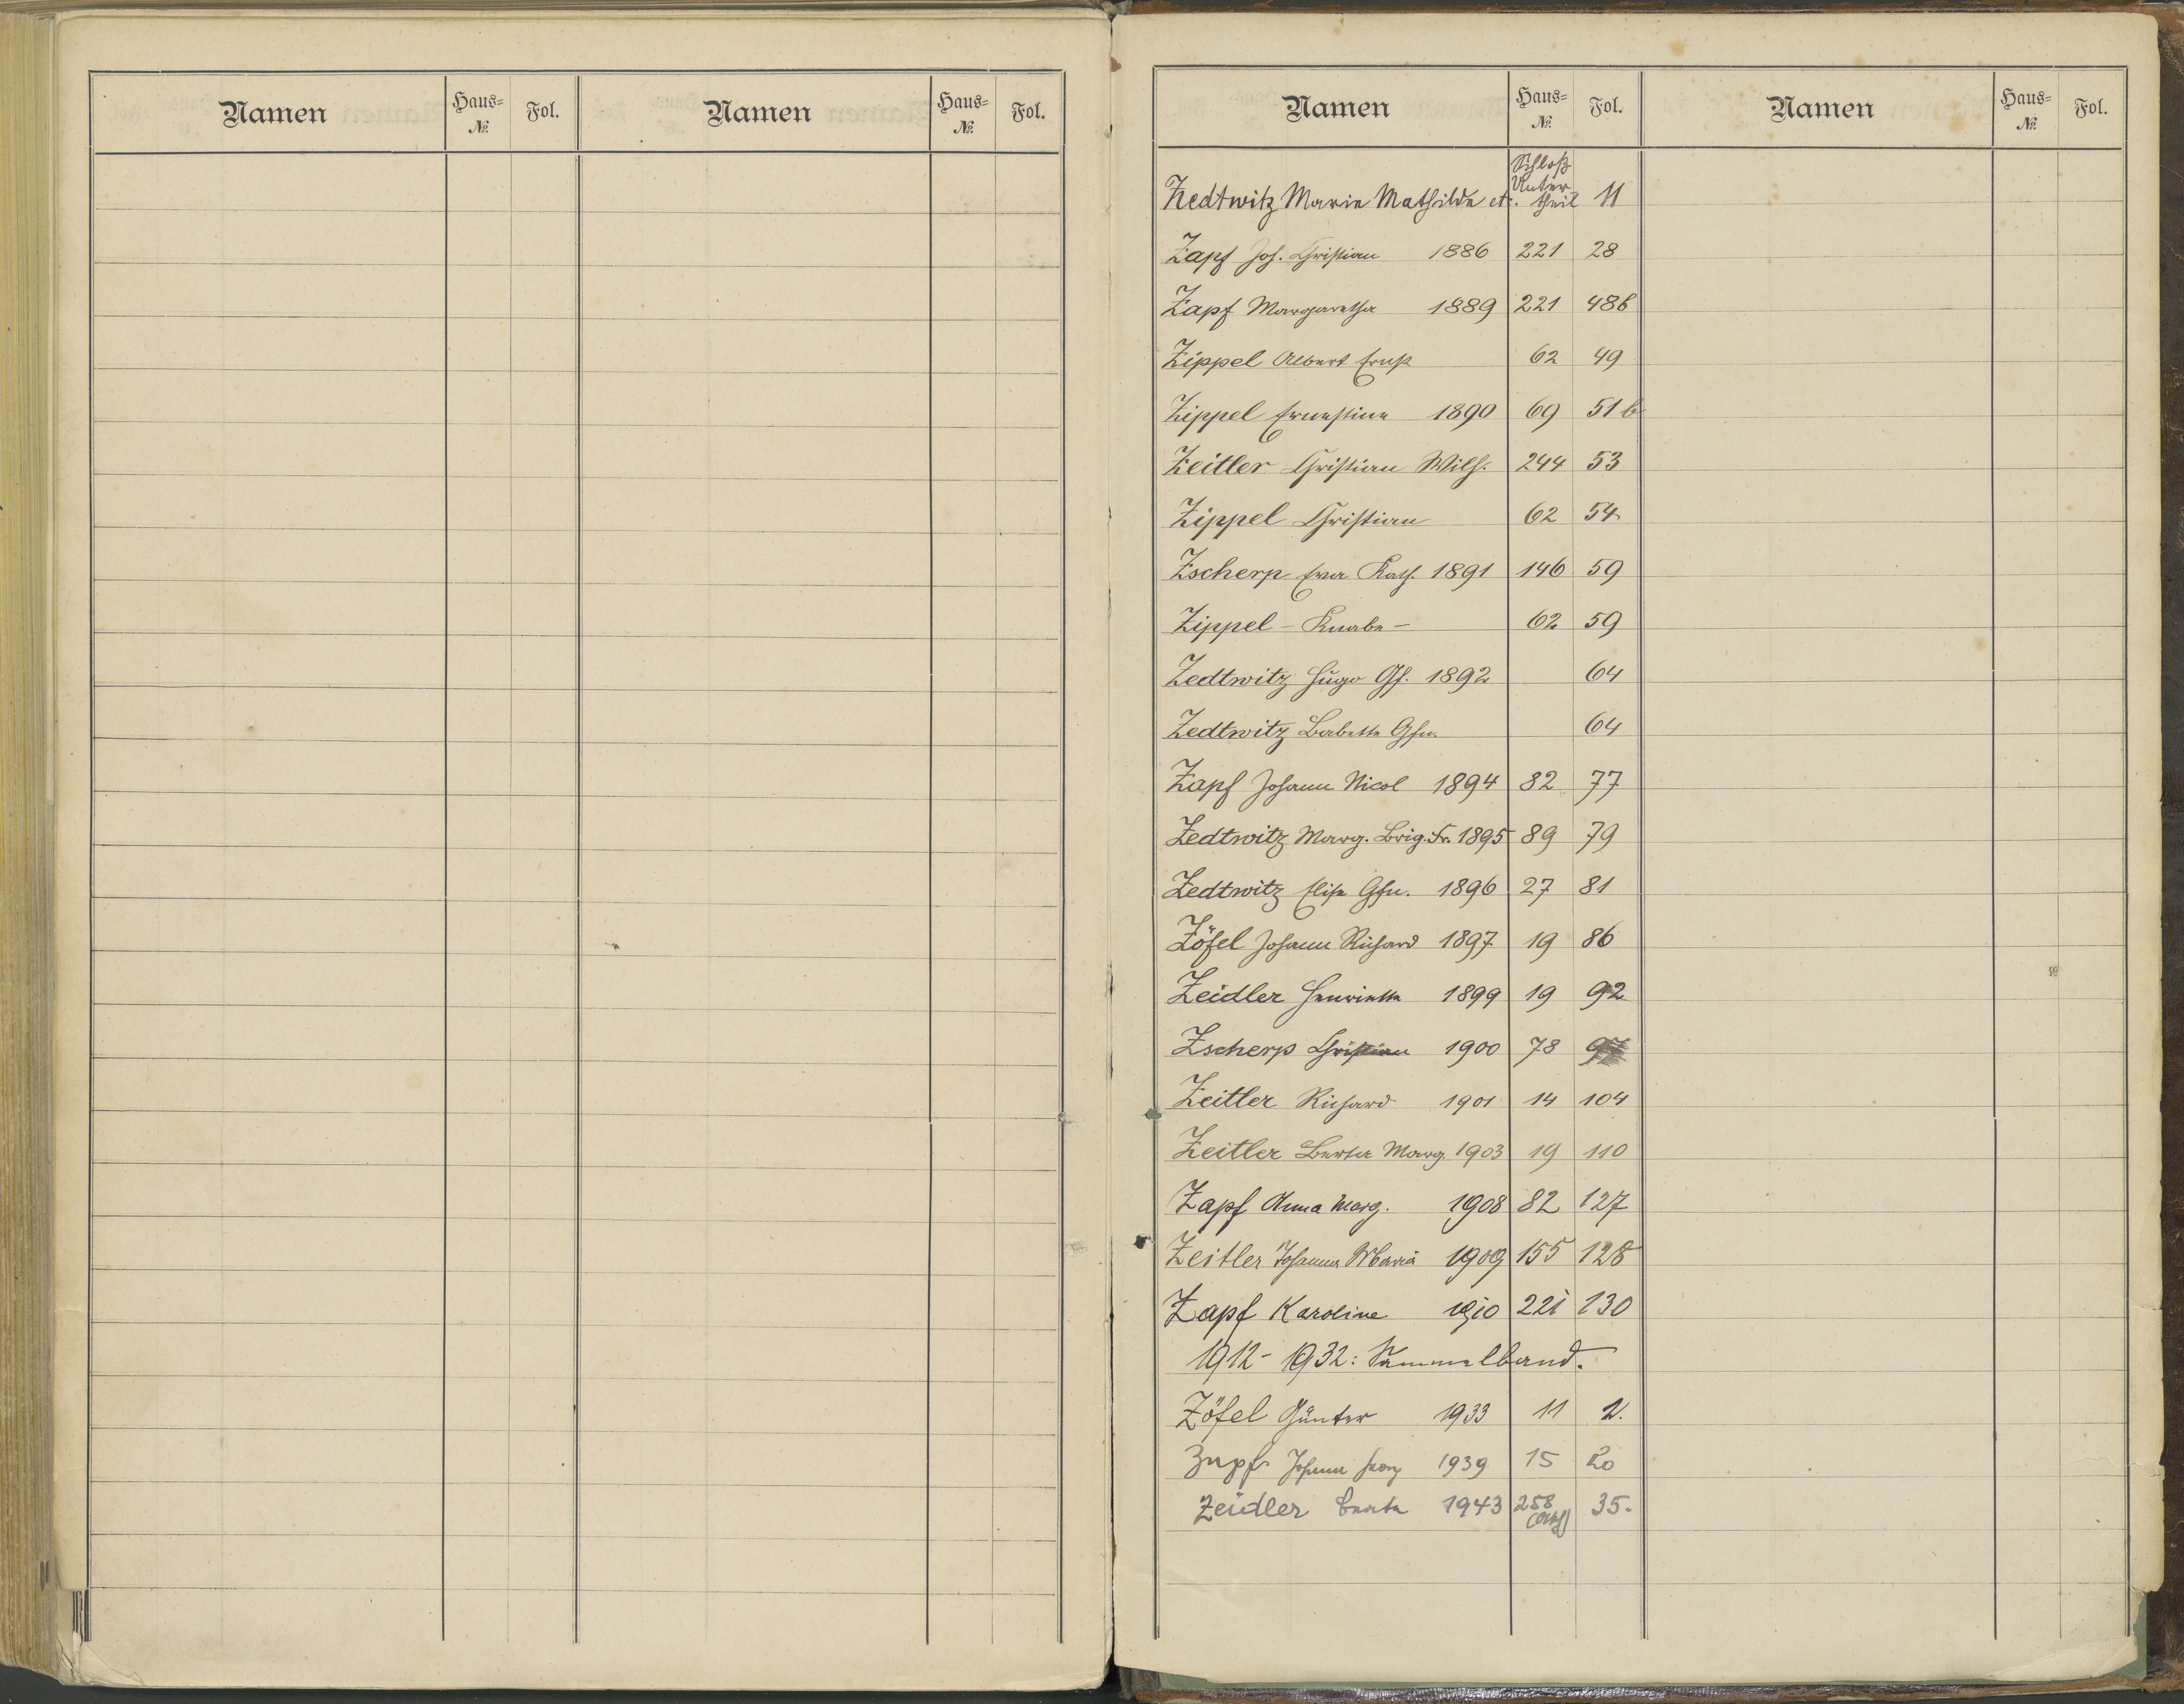 Namen Haus-№ Fol. Namen Haus-№ Fol.
Namen Haus-№ Fol. Namen Haus-№ Fol.
Zedtwitz Marie Mathilde etc. Schloß Untertheil 11
Zapf Joh. Christian 1886 221 28
Zapf Margaretha 1889 221 48b
Zippel Albert Ernst 62 49
Zippel Ernestine 1890 69 51b
Zeitler Christian Wilh. 244 53
Zippel Christian 62 54
Zscherp Eva Kath. 1891 146 59
Zippel - Knabe - 62 59
Zedtwitz Hugo Gf. 1892 64
Zedtwitz Babette Gfn. 64
Zapf Johann Nicol 1894 82 77
Zedtwitz Marg. Brig. Fr. 1895 89 79
Zedtwitz Elise Gfn. 1896 27 81
Zöfel Johann Richard 1897 19 86
Zeidler Henriette 1899 19 92
Zscherp Christian 1900 78 97
Zeitler Richard 1901 14 104
Zeitler Berta Marg. 1903 19 110
Zapf Anna Marg. 1908 82 127
Zeitler Johanna Maria 1909 155 128
Zapf Karoline 1910 221 130
1912 - 1932: Sammelband.
Zöfel Günter 1933 11 2.
Zapf Johann Georg 1939 15 20
Zeidler Beate 1943 258 35.